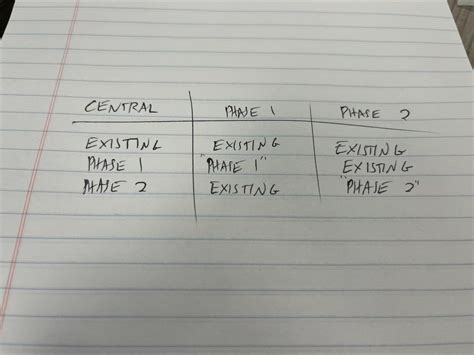 CENTRAL PHASE 1 PHASE 2
EXISTING EXISTING EXISTING
PHASE 1 "PHASE 1" EXISTING
PHASE 2 EXISTING "PHASE 2"